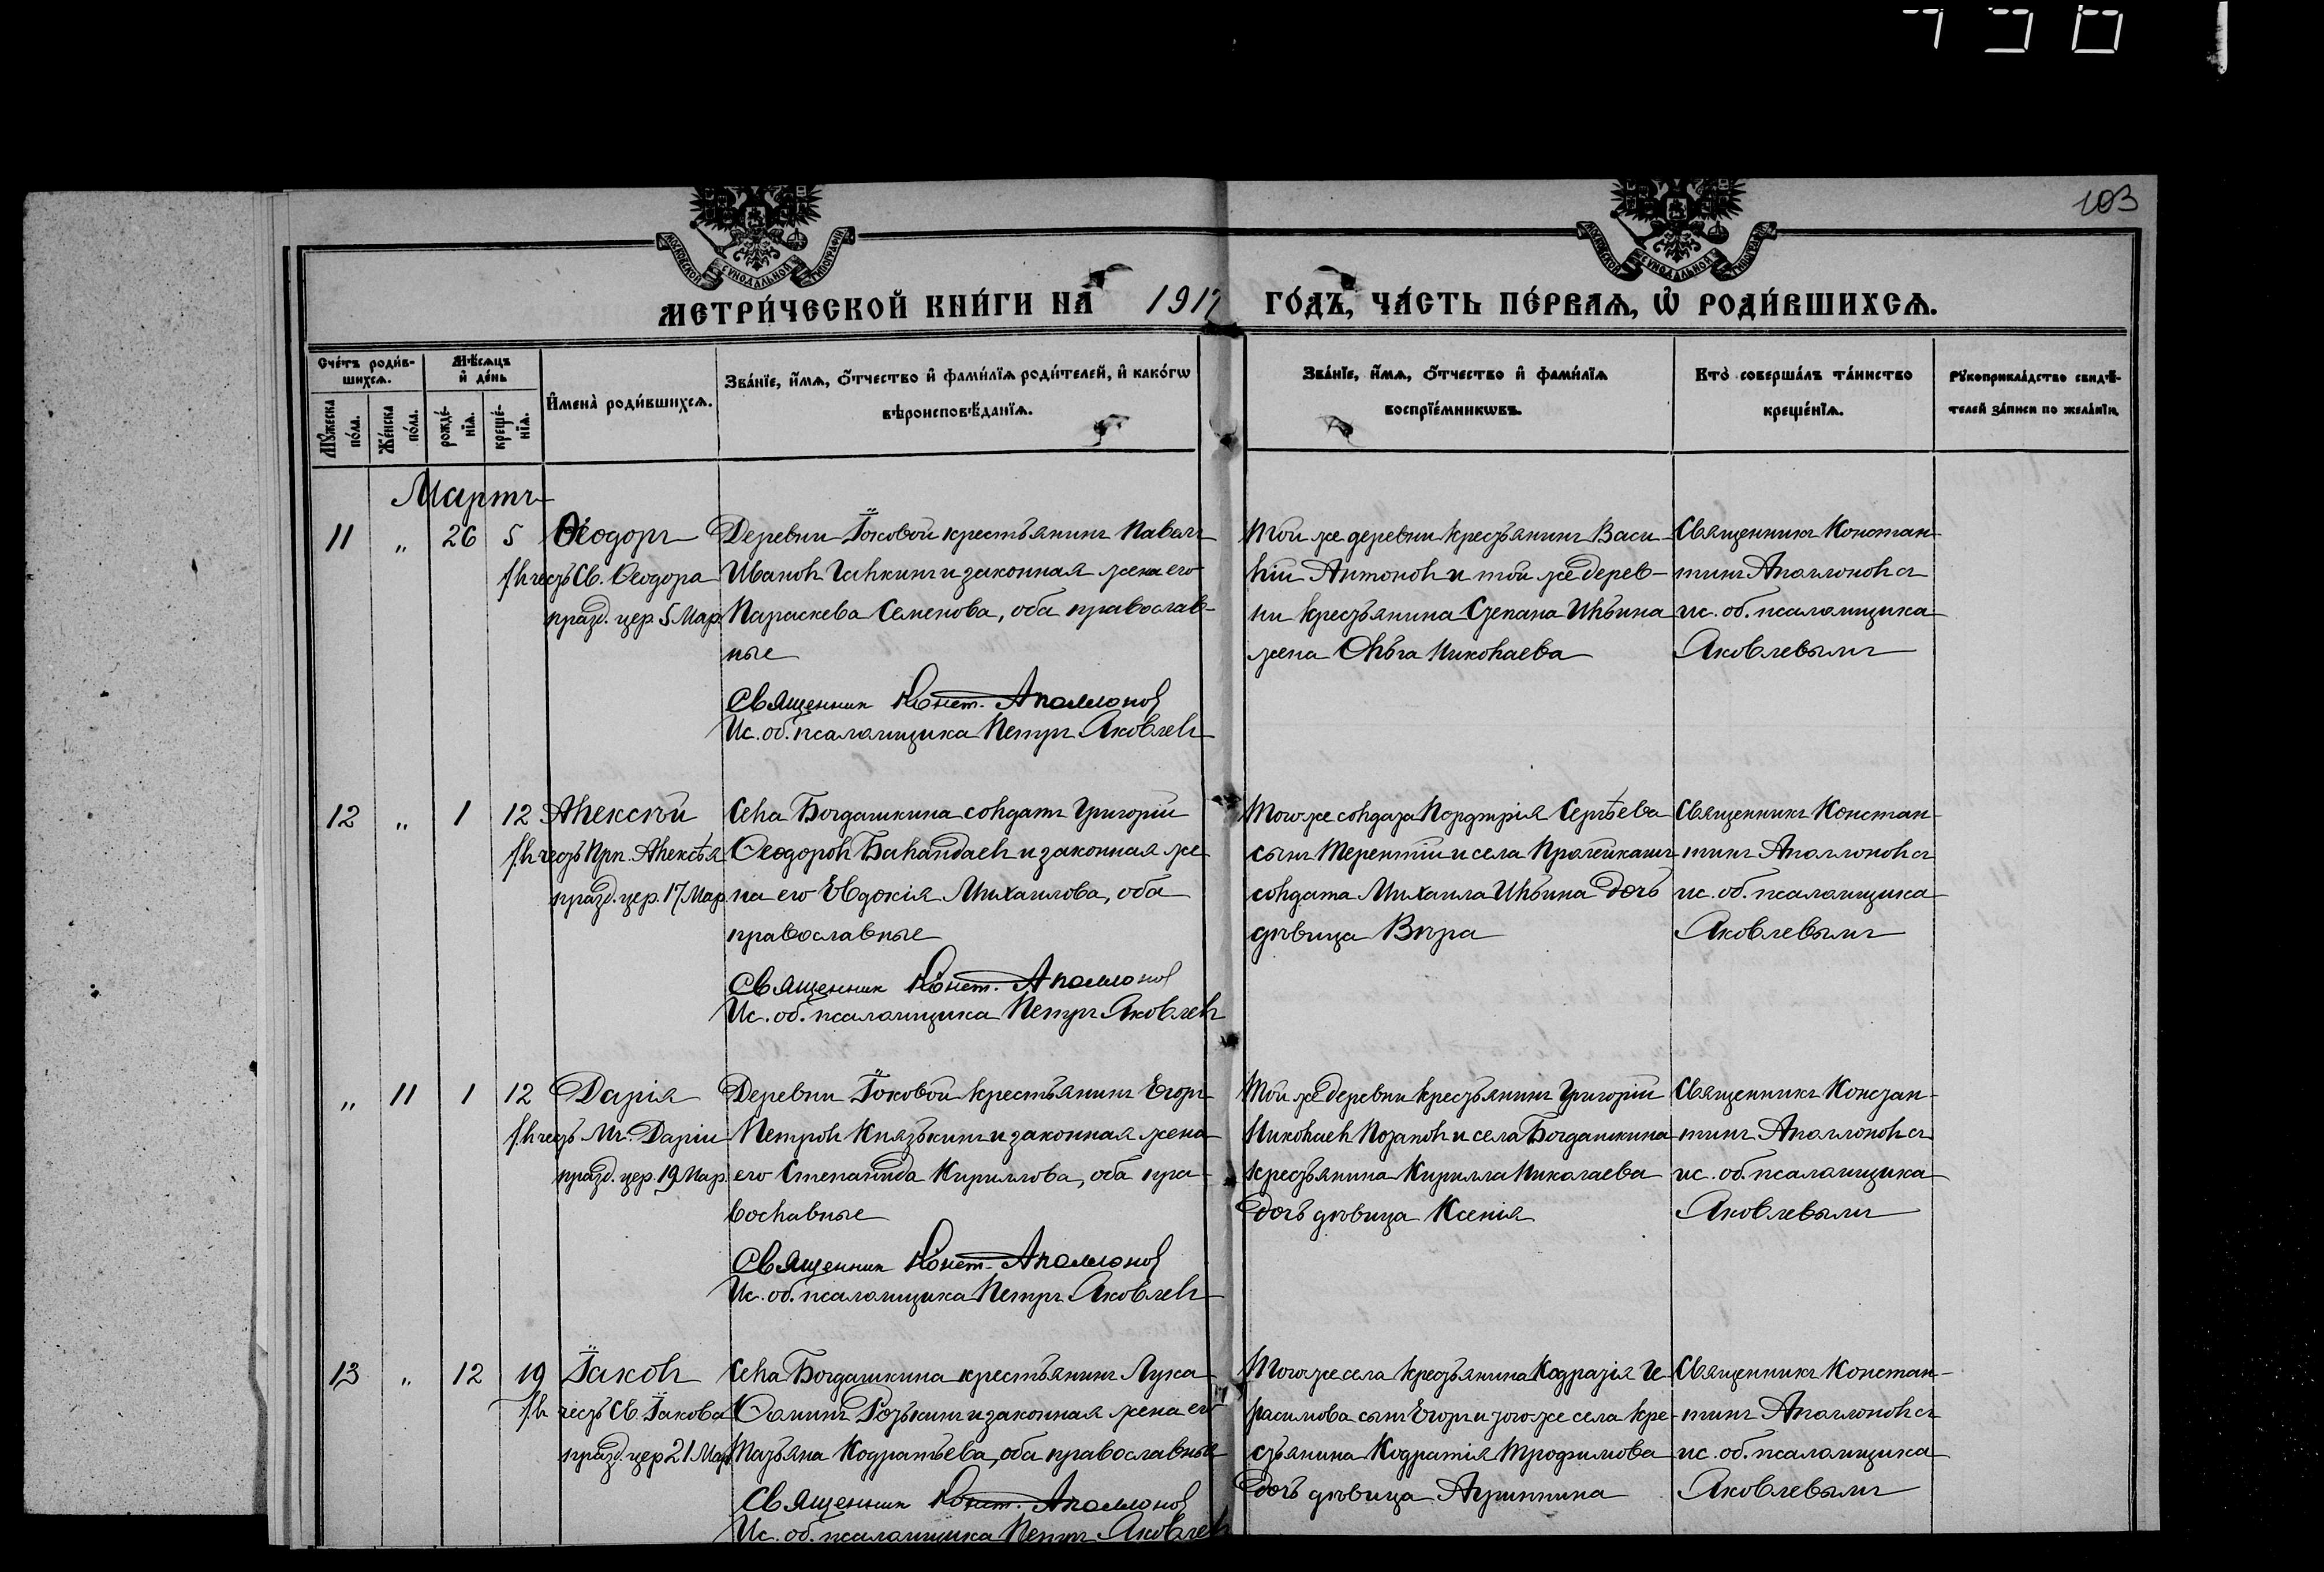 103
МОСКОВСКОЙ СѴНОДАЛЬНОЙ ТИПОГРАФІИ
МОСКОВСКОЙ СѴНОДАЛЬНОЙ ТИПОГРАФІИ
МЕТРИ́ЧЕСКОЙ КНИ́ГИ НА 1917 ГО́ДЪ, ЧА́СТЬ ПЕ́РВАѦ, Ѡ РОДИ́ВШИХСѦ.
Сче́тъ роди́в-
шихсѧ.
Мѣ́сѧцъ
и де́нь
Мꙋ́жеска
по́ла.
Же́нска
по́ла.
рожде́-
нїѧ.
креще́-
нїѧ.
Имена̀ роди́вшихсѧ.
Зва́нїе, и́мѧ, о́тчество и фами́лїѧ роди́телей, и како́гѡ
вѣроисповѣ́данїѧ.
Зва́нїе, и́мѧ, о́тчество и фами́лїѧ
воспрїе́мникѡвъ.
Кто̀ соверша́лъ та́инство
креще́нїѧ.
Рꙋкоприкла́дство свидѣ́-
телей за́писи по жела́нїю.
Мартъ
11 „ 26 5 Ѳеодоръ
въ честь Св. Ѳеодора
празд. цер. 5 Мар.
Деревни Їоковой крестьянинъ Павелъ
Ивановъ и законная жена его
Параскева Семенова, оба православ-
ные
Священник Конст. Аполлонов
Ис. об. псаломщика Петръ Яковлевъ
Той же деревни крестьянинъ Васи-
лій Антоновъ и той же дерев-
ни крестьянина Степана Ильина
жена Ольга Николаева
Священникъ Констан-
тинъ Аполлоновъ съ
ис. об. псаломщика
Яковлевымъ
12 „ 1 12 Алексѣй
въ честь Прп. Алексѣя
празд. цер. 17 Мар.
Села Богдашкина солдатъ Григорій
Ѳеодоровъ Баландаевъ и законная же
на его Евдокія Михаилова, оба
православные
Священник Конст. Аполлонов
Ис. об. псаломщика Петръ Яковлевъ
Того же солдата Сергѣева
сынъ Терентій и села
солдата Михаила Ильина дочь
дѣвица Вѣра
Священникъ Констан-
тинъ Аполлоновъ съ
ис. об. псаломщика
Яковлевымъ
„ 11 1 12 Дарія
въ честь Мч. Даріи
празд. цер. 19 Мар.
Деревни Їоковой крестьянинъ Егоръ
Петровъ Князькинъ и законная жена
его Степанида Кириллова, оба пра-
вославные
Священник Конст. Аполлонов
Ис. об. псаломщика Петръ Яковлевъ
Той же деревни крестьянинъ Григорій
Николаевъ Потаповъ и села Богдашкина
крестьянина Кирилла Николаева
дочь дѣвица Ксенія
Священникъ Констан-
тинъ Аполлоновъ съ
ис. об. псаломщика
Яковлевымъ
13 „ 12 19 Їаковъ
въ честь Св. Їакова
празд. цер. 21 Мар.
Села Богдашкина крестьянинъ Лука
Ѳоминъ и законная жена его
Татьяна Кодратьева, оба православные
Священник Конст. Аполлонов
Ис. об. псаломщика Петръ Яковлевъ
Того же села крестьянина Кодратія Ге-
расимова сынъ Егоръ и того же села кре-
стьянина Кодратія Трофимова
дочь дѣвица Агриппина
Священникъ Констан-
тинъ Аполлоновъ съ
ис. об. псаломщика
Яковлевымъ